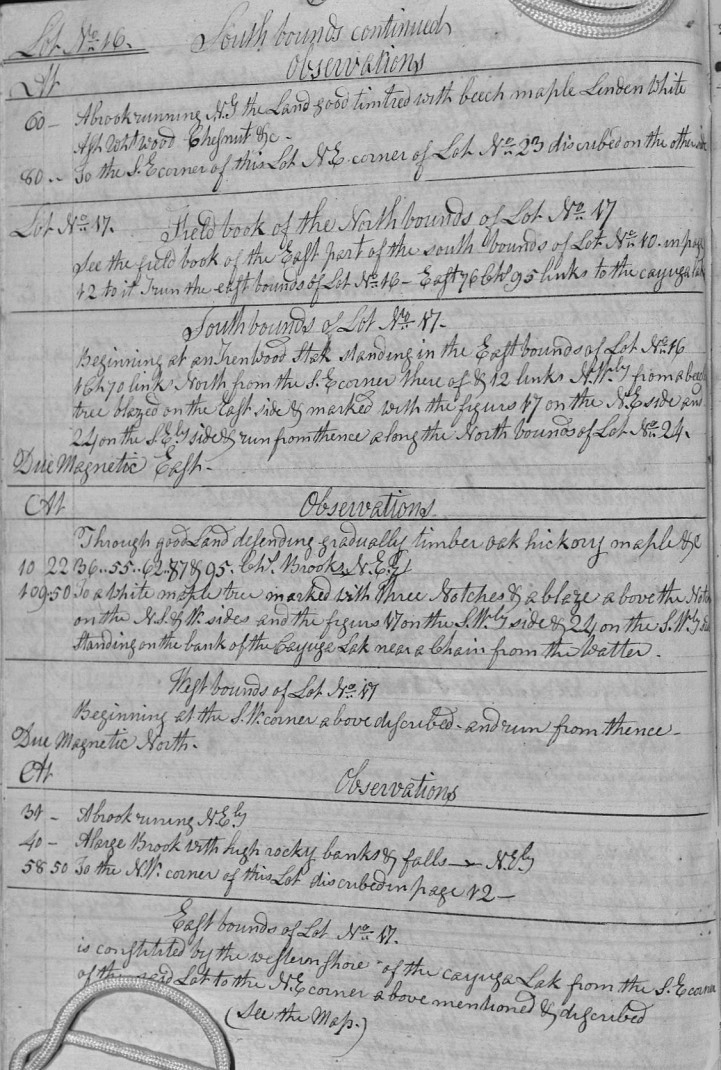 Lot No. 16. South bounds continued
At Observations
60 – A brook running N.E the Land good timtred with beech maple Linden White
Ash Whtwood Chesnut &c –
80 .. To the S.E corner of this Lot N.E corner of Lot No. 23 discribed on the other side
Lot No. 17. Field book of the North bounds of Lot No. 17
See the field book of the East part of the south bounds of Lot No. 10. in page
12 to it I run the east bounds of Lot No. 16 – East 76 Chs 95 links to the cayuga Lak
South bounds of Lot No. 17.
Beginning at an Iren Wood Stak standing in the East bounds of Lot No. 16
1 Ch 70 links North from the S.E corner there of & 12 links N.Wly from a beech
tree blazed on the East side & marked with the figurs 17 on the N.E side and
24 on the S.Ely side & run from thence along the North bounds of Lot No. 24.
Due Magnetic East.
At Observations
Through good Land desending gradually timber oak hickory maple &c
10 22 36 .. 55 .. 62 .. 87 & 95. Chs. Brooks N.Ely
109.50 To a White maple tree marked with three Notches & a blaze above the Notch
on the N.S. & W. sides and the figurs 17 on the S.Wly side & 24 on the S.Wly side
standing on the bank of the Cayuga Lak near a Chain from the Watter.
West bounds of Lot No. 17
Beginning at the S.W. corner above discribed – and run from thence –
Due Magnetic North.
At Observations
31 – A brook runing N.Ely
40 – A large Brook with high rocky banks & falls – N.Ely
58 50 To the N.W. corner of this Lot discribed in page 12 –
East bounds of Lot No. 17.
is constitited by the western shore of the cayuga Lak from the S.E corner
of the said Lot to the N.E corner above mentioned & discribed
(See the Map.)